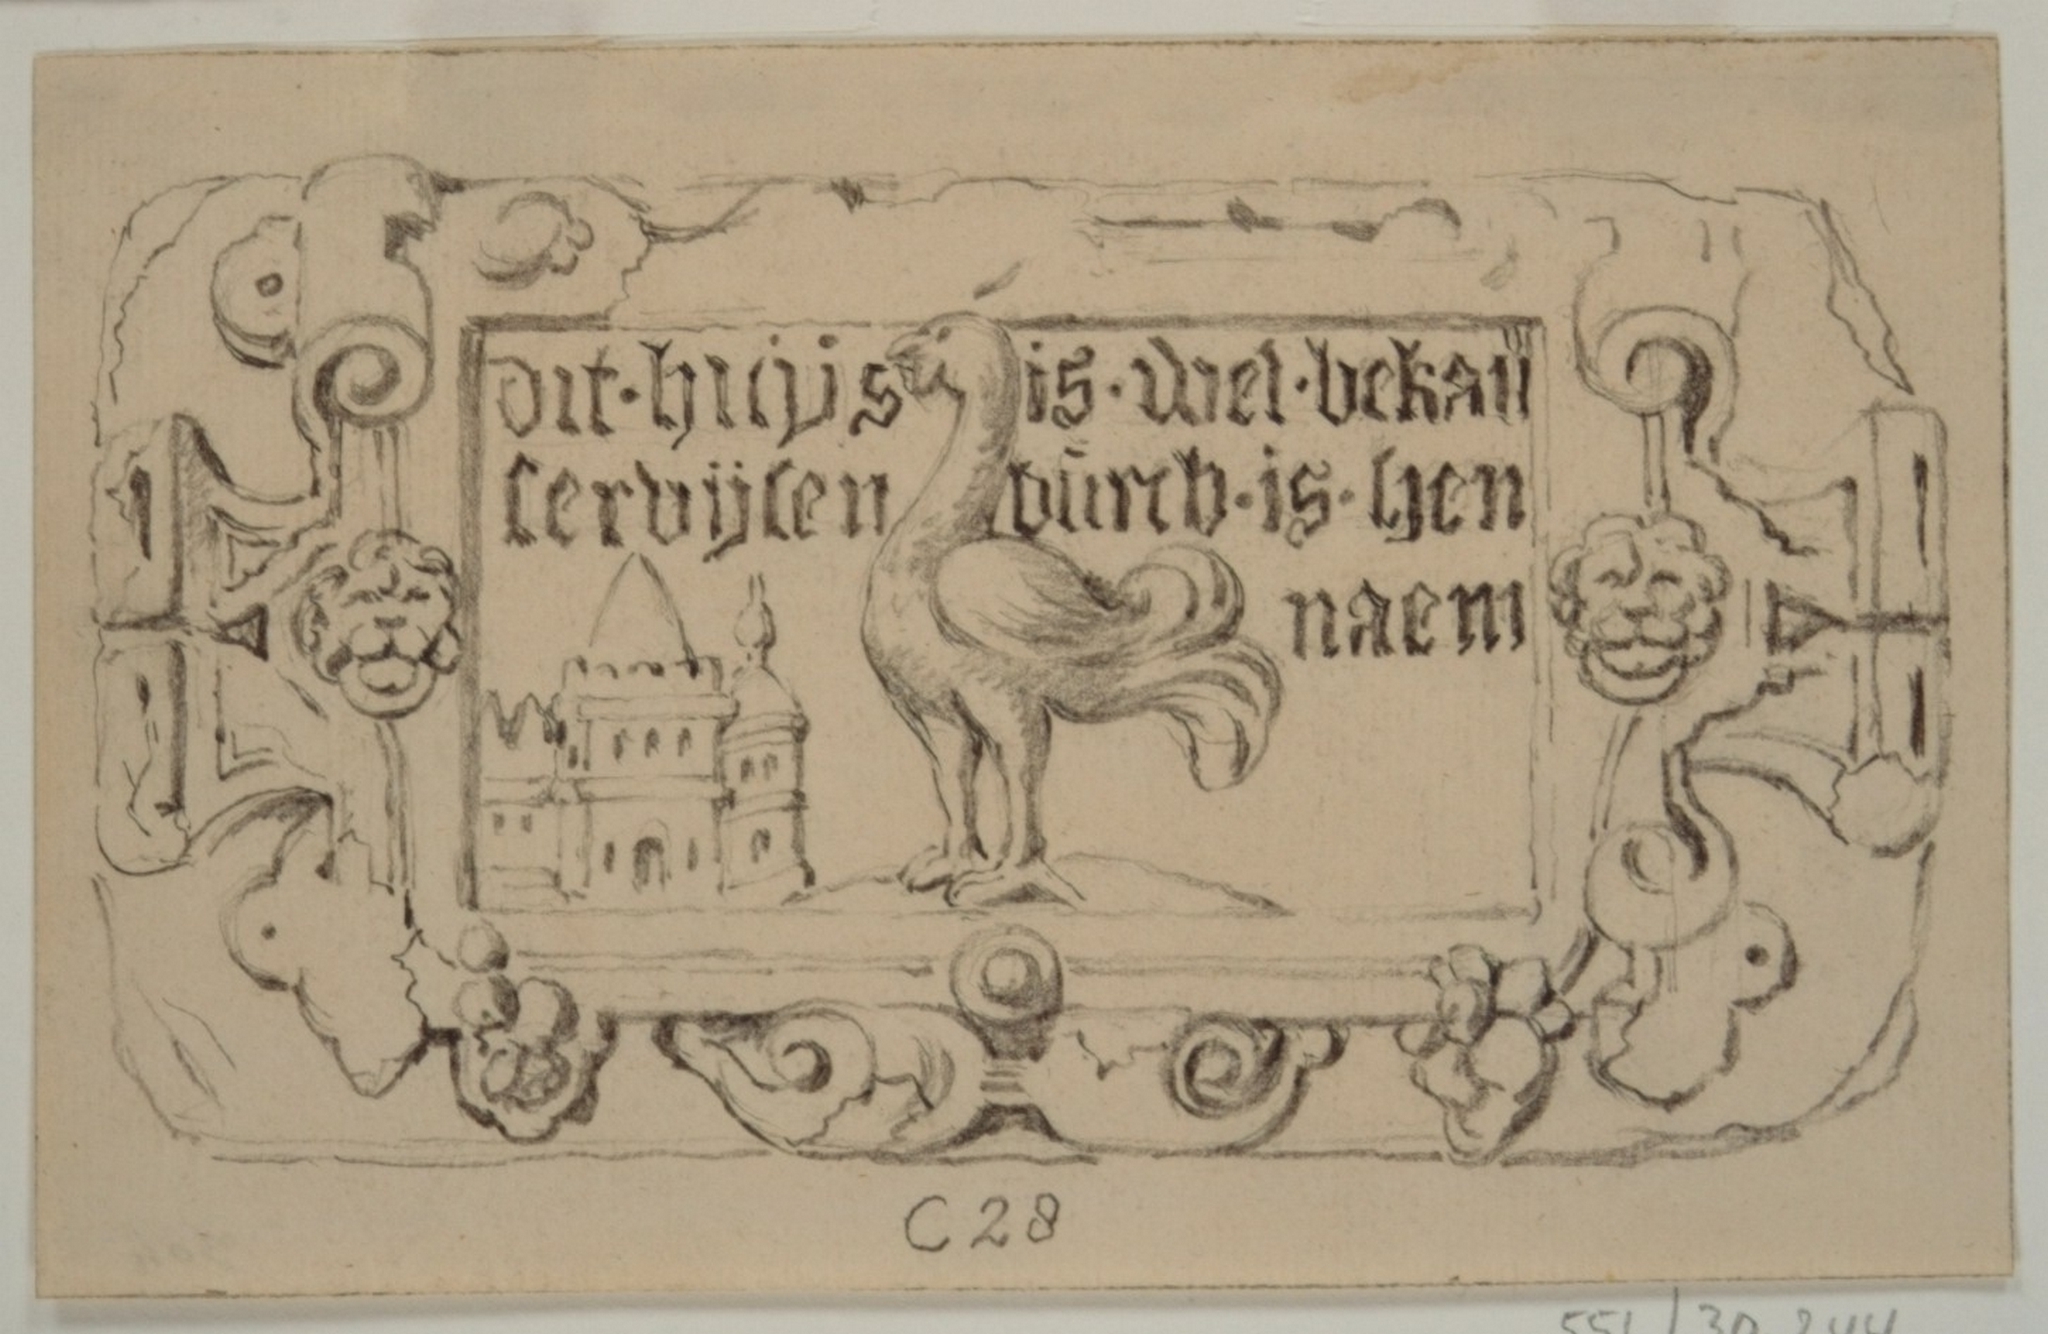 dit·huijs is·wel·bekan̄
servijsen bŭrch·is·hen
naem
C 28
551/30.244